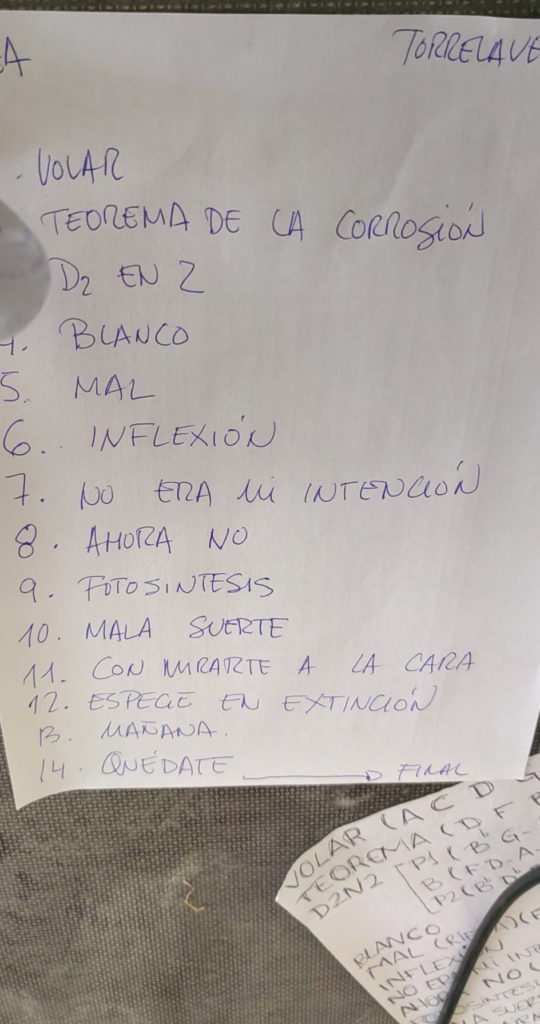 A TORRELAVE
. VOLAR
TEOREMA DE LA CORROSIÓN
D2 EN 2
4. BLANCO
5. MAL
6. INFLEXIÓN
7. NO ERA MI INTENCIÓN
8. AHORA NO
9. FOTOSINTESIS
10. MALA SUERTE
11. CON MIRARTE A LA CARA
12. ESPECIE EN EXTINCIÓN
13. MAÑANA.
14. QUÉDATE → FINAL
VOLAR (A C D
TEOREMA (D F
D2N2 [P1 (Bb G-
B (F D-A-
P2 (Bb D
BLANCO
MAL
INFLEXIÓN
NO ERA MI INT
AHORA NO (